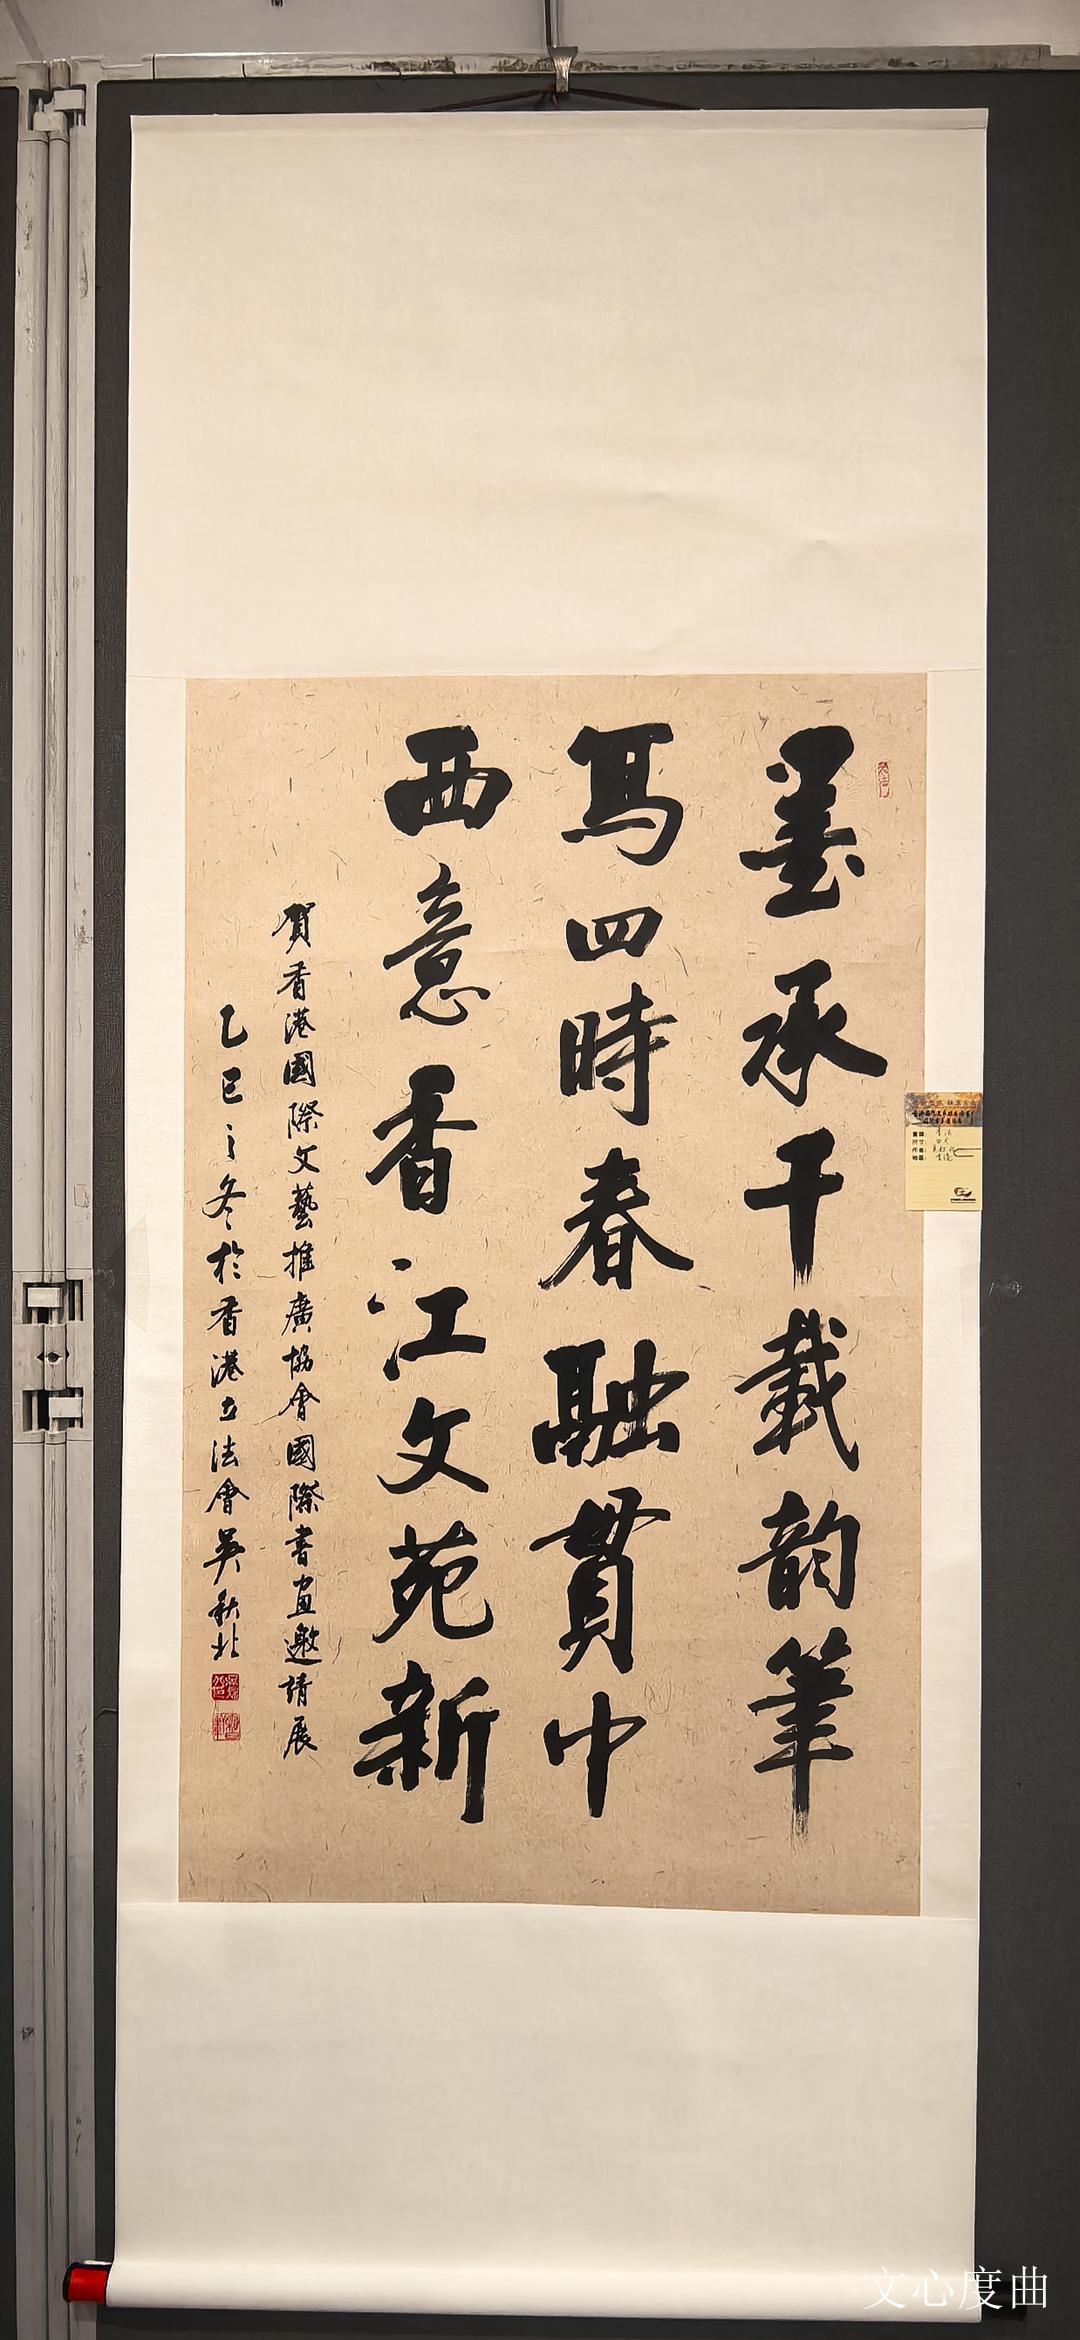 墨承千載韵筆
寫四時春融貫中
西意香江文苑新
賀香港國際文藝推廣協會國際書畫邀請展
乙巳之冬於香港立法會吳秋北
文心度曲